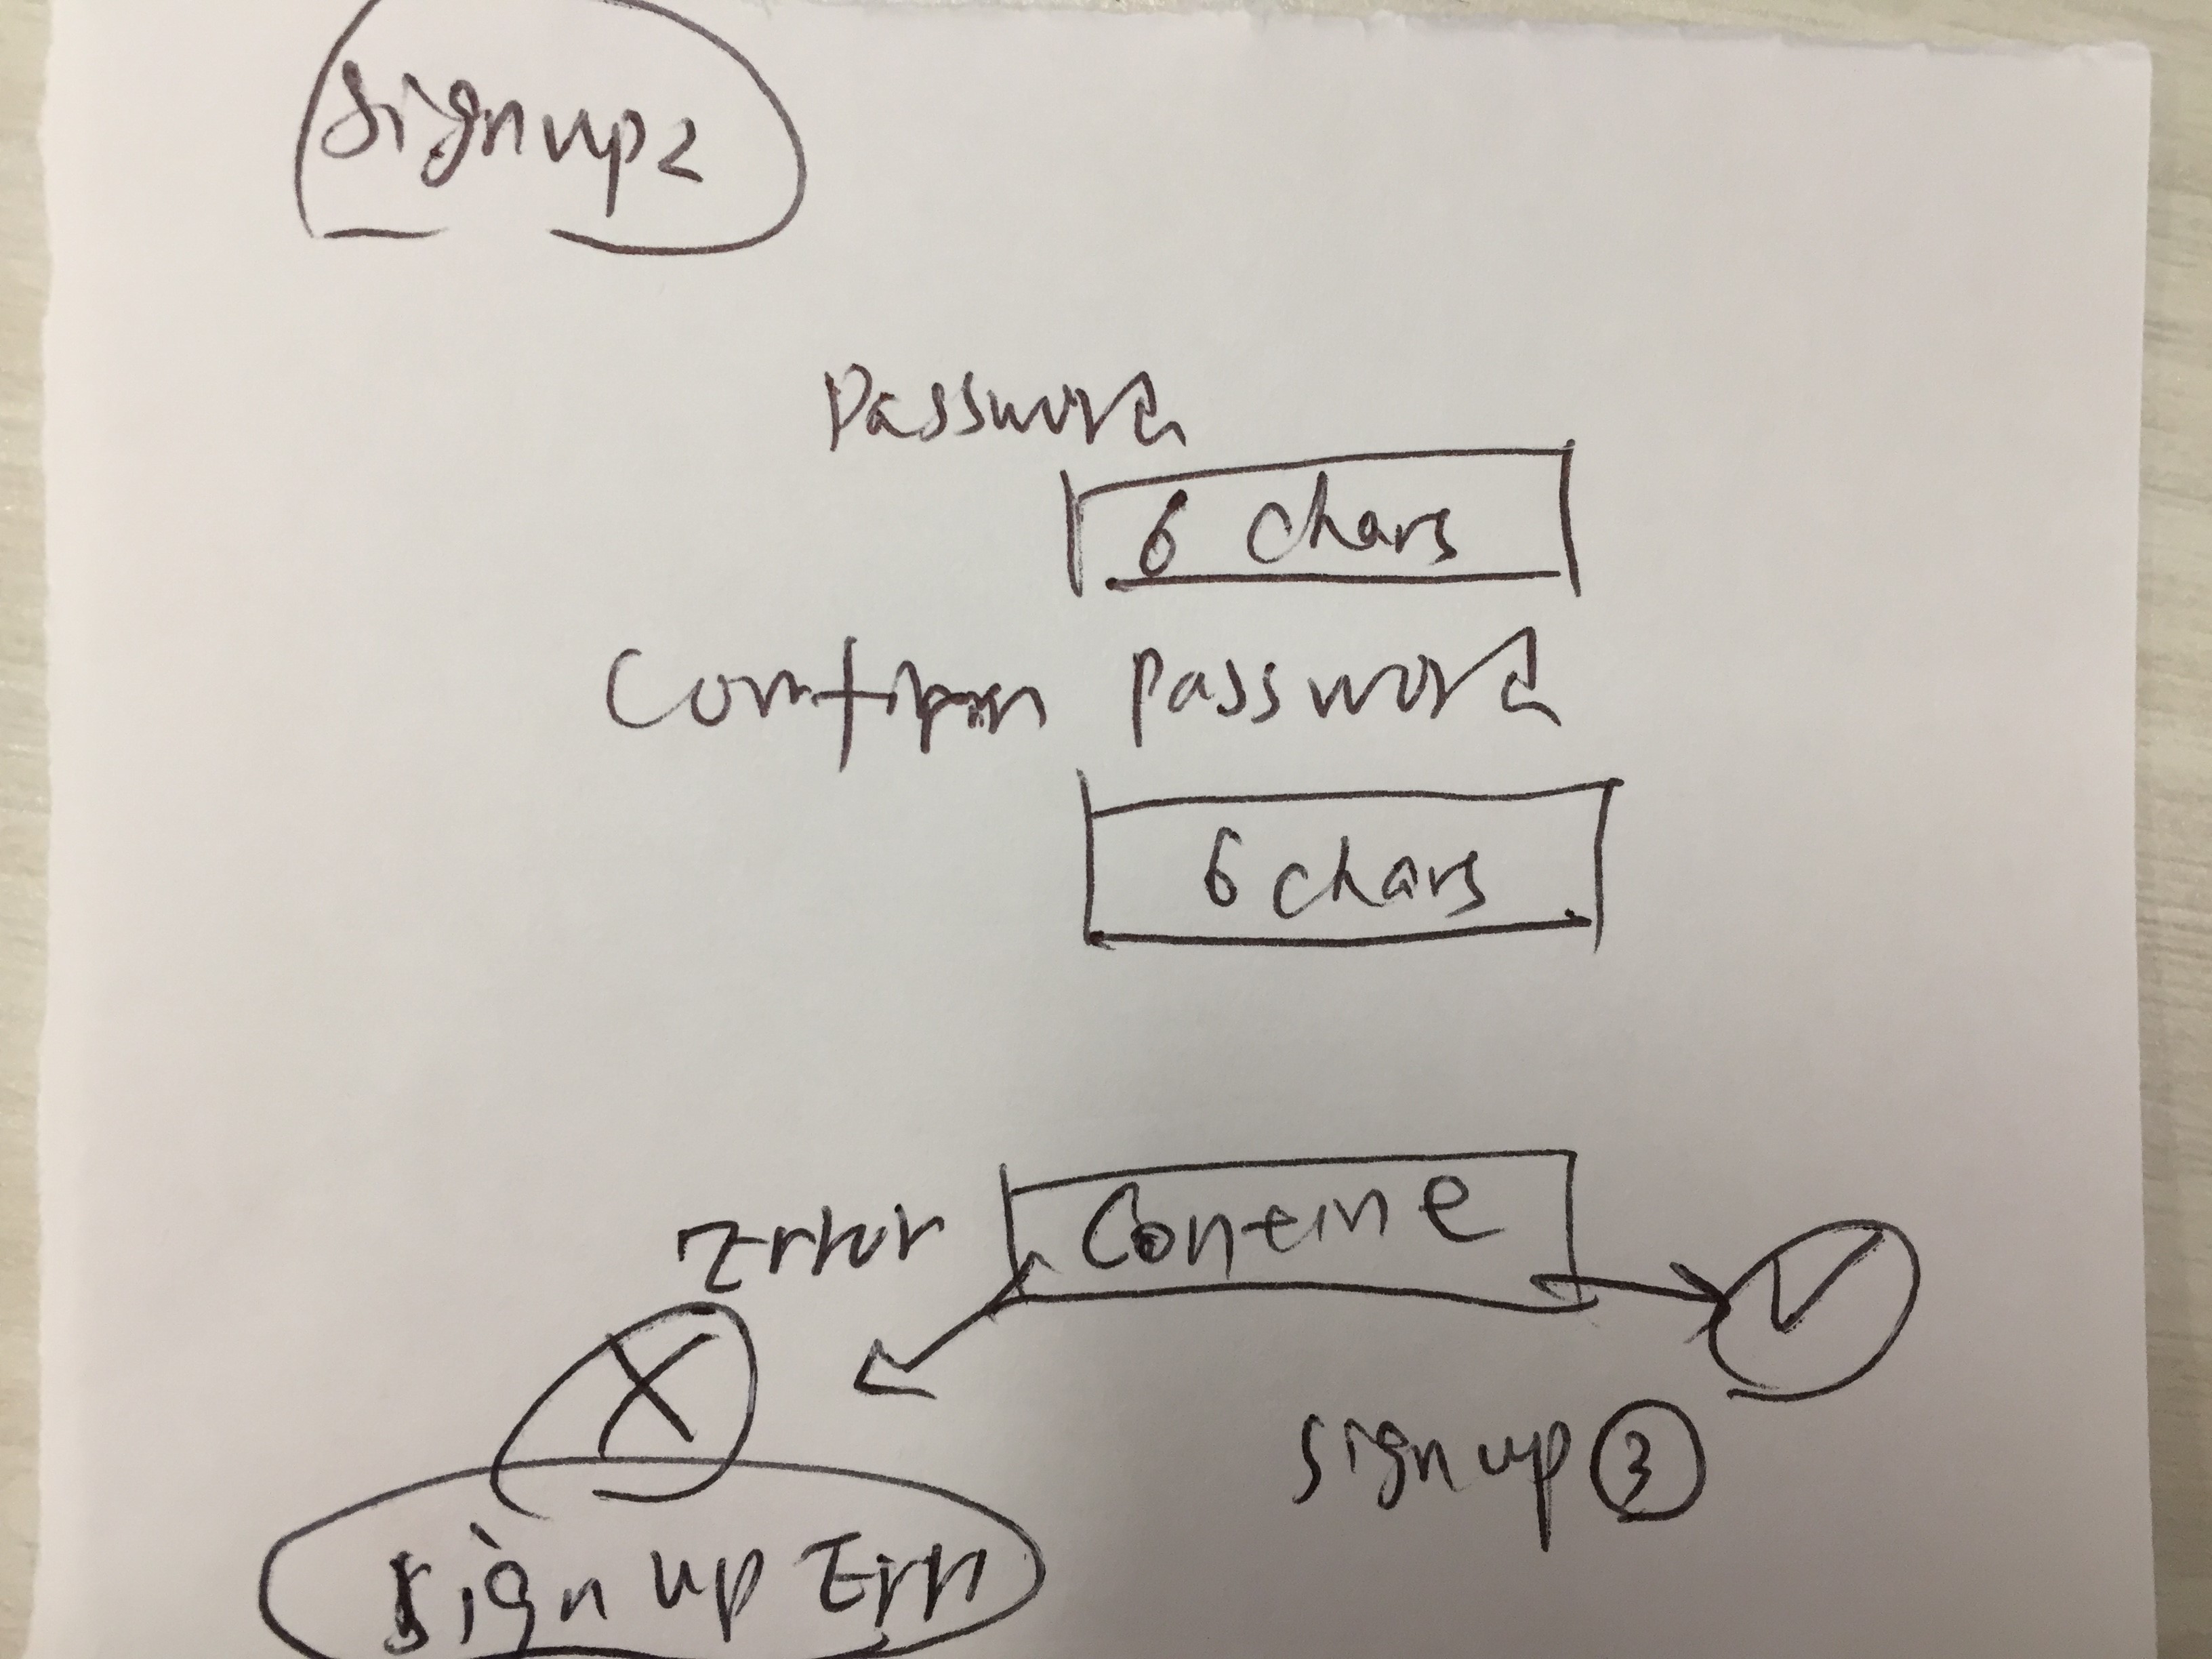 signup2
Password
6 chars
Comfirm Password
6 chars
Error
Contine
signup 3
sign up Err